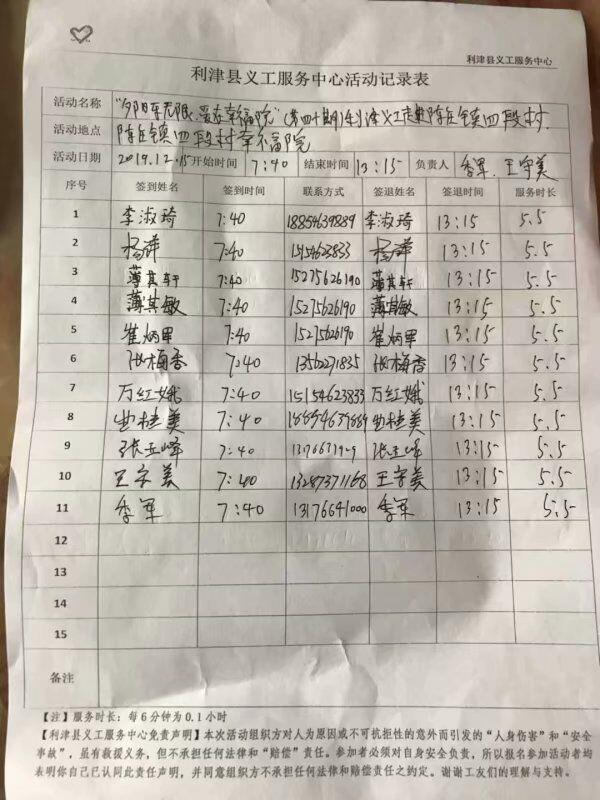 利津县义工服务中心
利津县义工服务中心活动记录表
活动名称 "夕阳无限, 爱在幸福院" (第四十期)利津义工走进陈庄镇四段村.
活动地点 陈庄镇四段村幸福院
活动日期 2019.12.15 开始时间 7:40 结束时间 13:15 负责人 季军. 王守美
序号 签到姓名 签到时间 联系方式 签退姓名 签退时间 服务时长
1 李淑琦 7:40 18854639889 李淑琦 13:15 5.5
2 杨萍 7:40 15154623833 杨萍 13:15 5.5
3 薄其轩 7:40 15275626190 薄其轩 13:15 5.5
4 薄其敏 7:40 15275626190 薄其敏 13:15 5.5
5 崔炳罡 7:40 15275626190 崔炳罡 13:15 5.5
6 张梅香 7:40 13562271835 张梅香 13:15 5.5
7 万红娥 7:40 15154623833 万红娥 13:15 5.5
8 曲桂美 7:40 18854639889 曲桂美 13:15 5.5
9 张玉峰 7:40 张玉峰 13:15 5.5
10 王守美 7:40 13287371168 王守美 13:15 5.5
11 季军 7:40 13176641000 季军 13:15 5.5
12
13
14
15
备注
【注】服务时长: 每6分钟为0.1小时
【利津县义工服务中心免责声明】本次活动组织方对人为原因或不可抗拒性的意外而引发的"人身伤害"和"安全
事故", 虽有救援义务, 但不承担任何法律和"赔偿"责任。参加者必须对自身安全负责, 所以报名参加活动者均
表明你自己已认同此责任声明, 并同意组织方不承担任何法律和赔偿责任之约定。谢谢工友们的理解与支持。